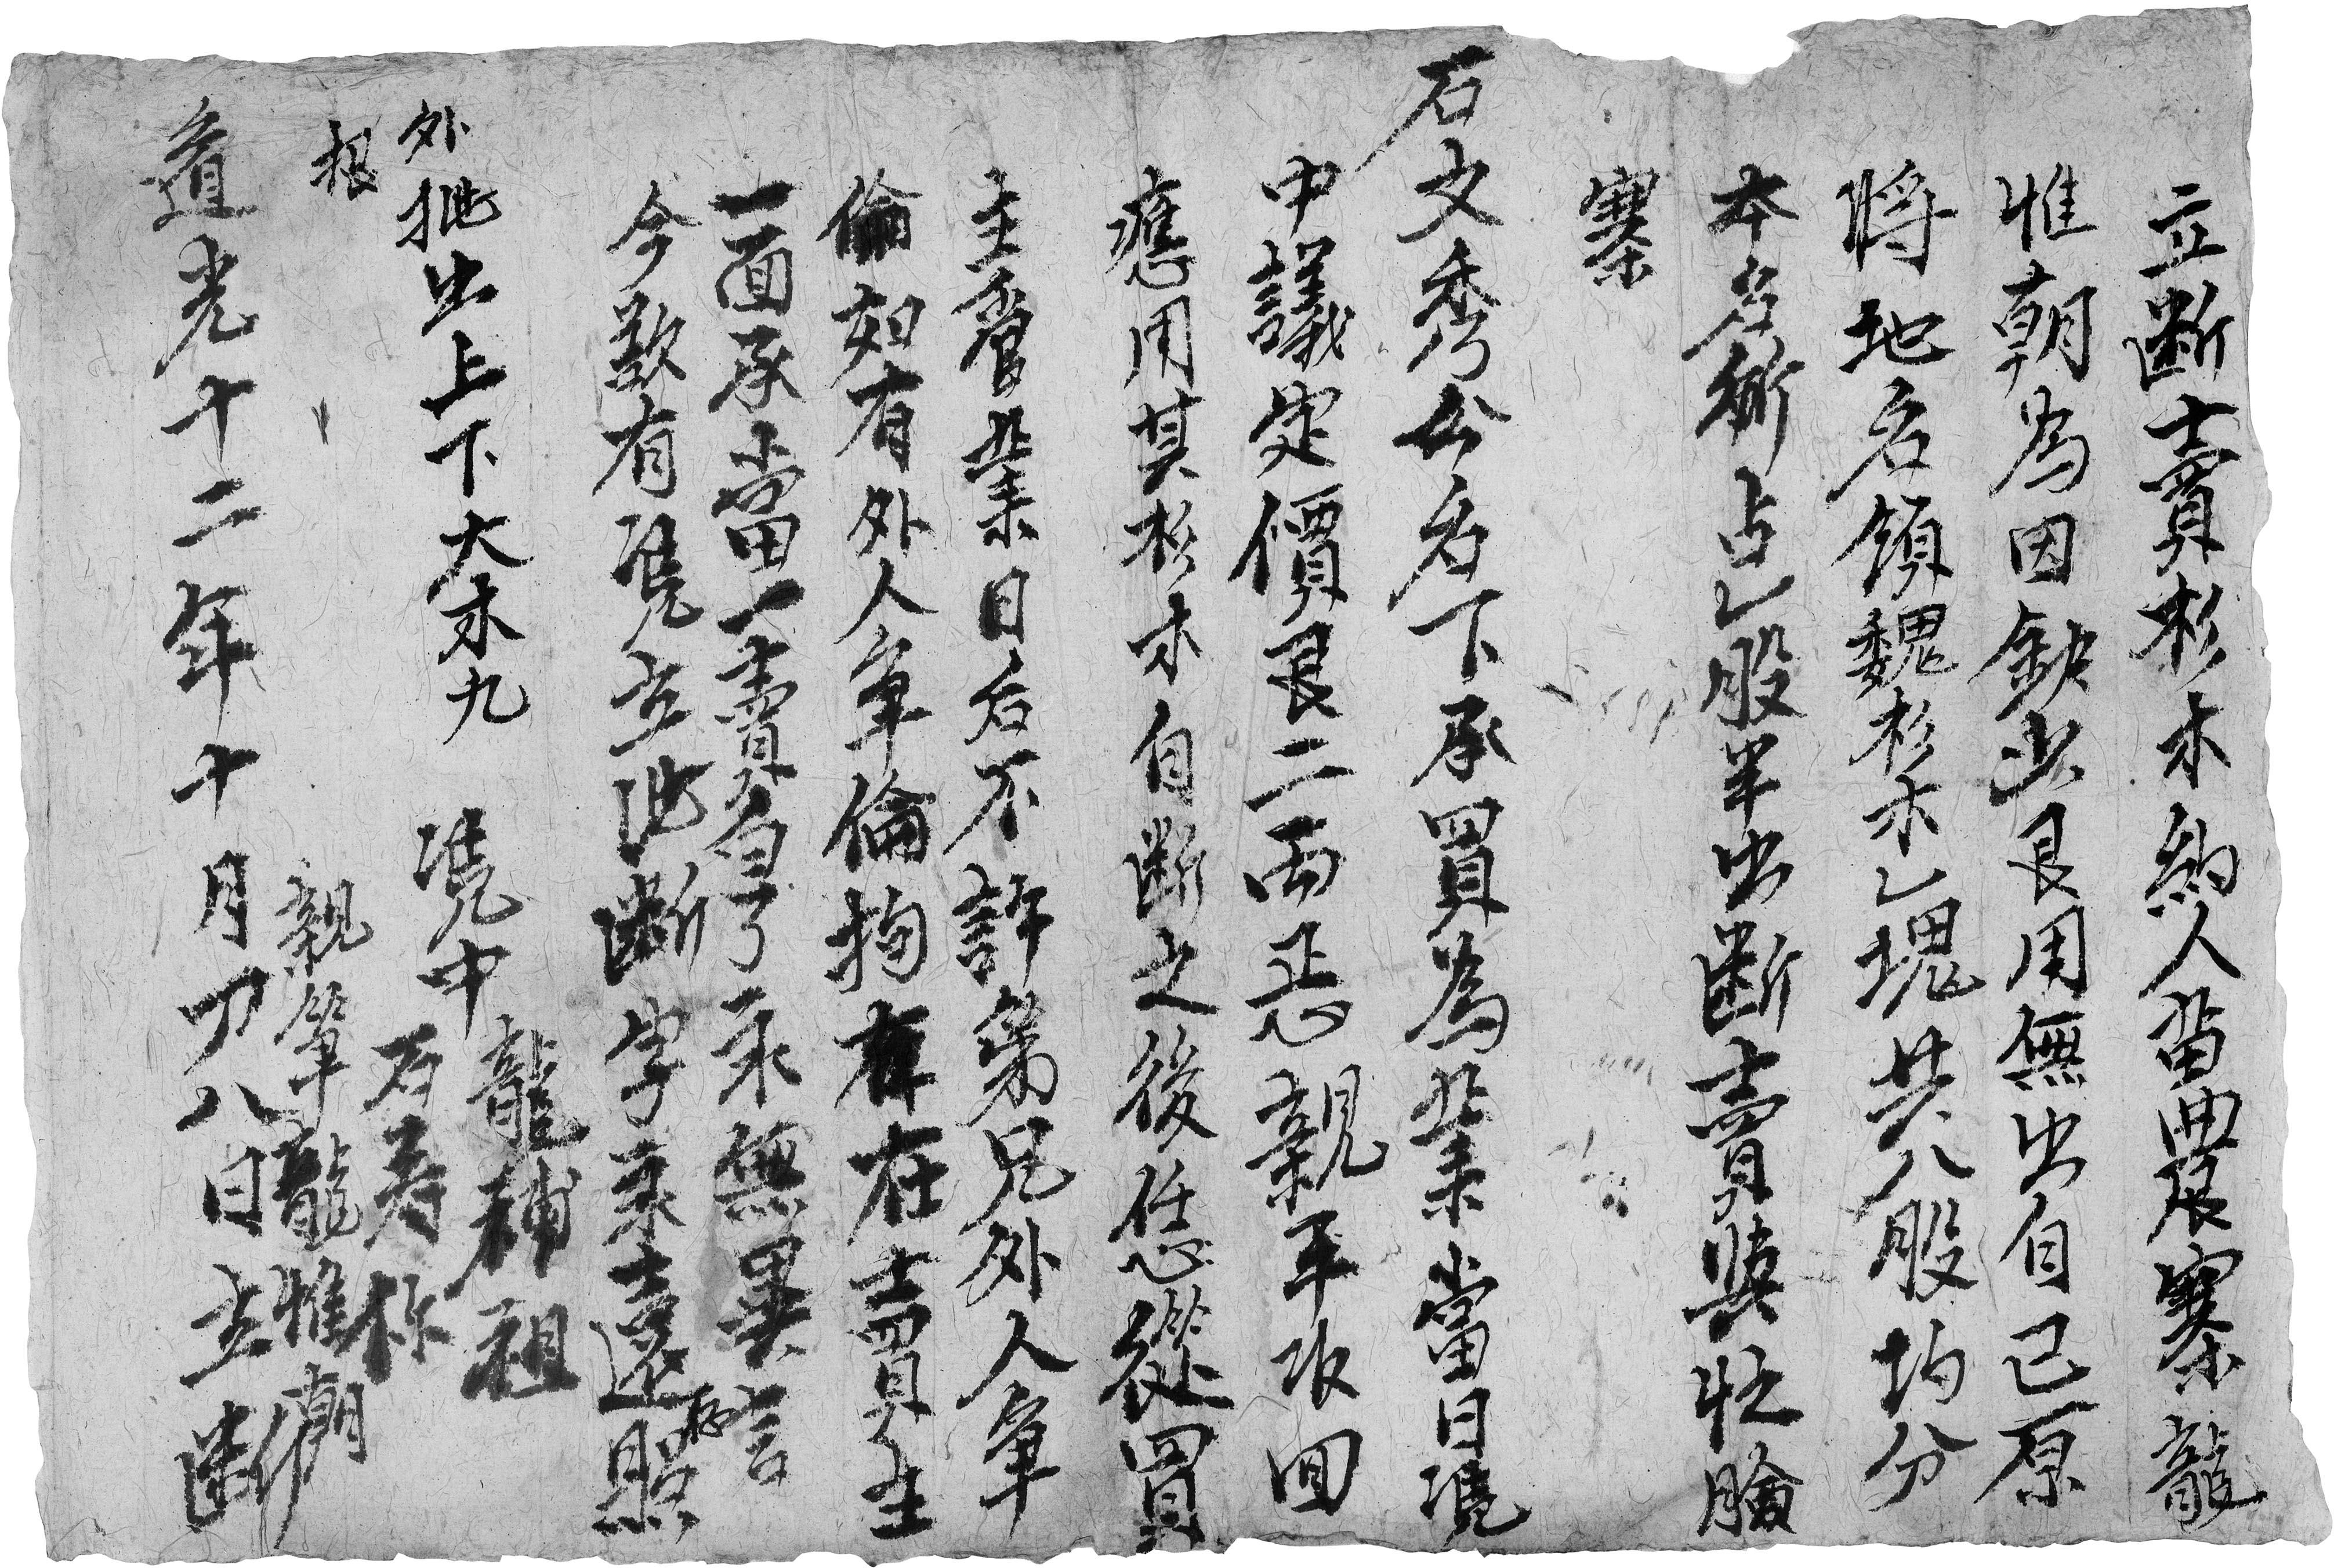 立断賣杉木約人畄農寨龍
惟朝為因缺少艮用無出自己原
将地名領魏杉木乙塊共八股均分
本名所占乙股半出断賣與壯膾
寨
石文秀公名下承買為業當日凴
中議定價艮二両正親手收回
應用其杉木自断之後任從買
主管業日后不許弟兄外人争
倫如有外人争倫拘在賣主
一面承當一賣了永無異言
今欲有凴立此断字永遠存照
外批出上下大木九
根
凴中 龍補祖
石寿
親筆龍惟朝
道光十二年十月八日立断